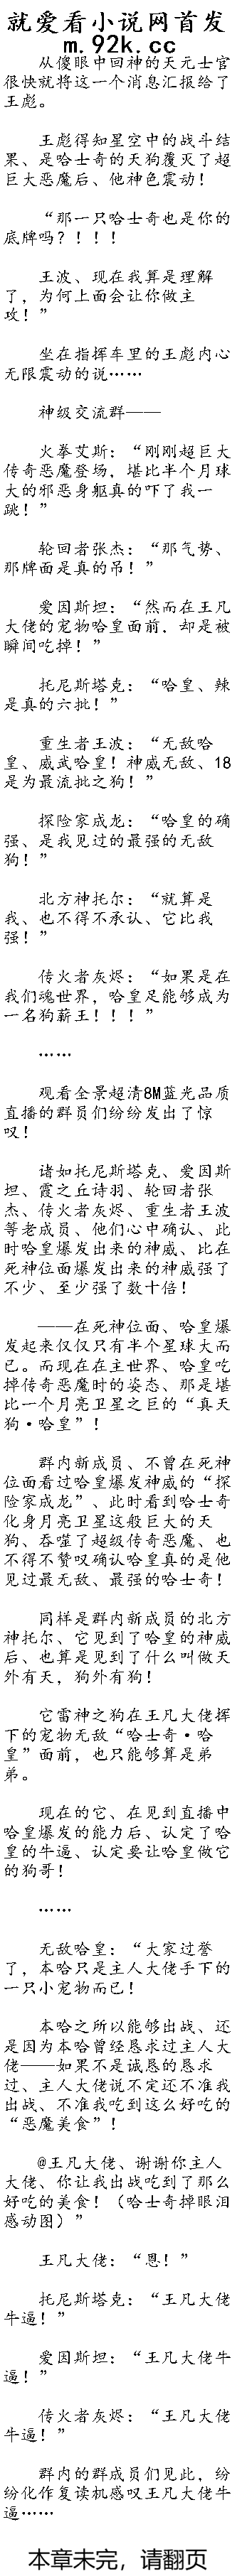 就爱看小说网首发
m.92k.cc
从傻眼中回神的天元士官
很快就将这一个消息汇报给了
王彪。
王彪得知星空中的战斗结
果、是哈士奇的天狗覆灭了超
巨大恶魔后、他神色震动！
“那一只哈士奇也是你的
底牌吗？！！！
王波、现在我算是理解
了，为何上面会让你做主
攻！”
坐在指挥车里的王彪内心
无限震动的说……
神级交流群——
火拳艾斯：“刚刚超巨大
传奇恶魔登场，堪比半个月球
大的邪恶身躯真的吓了我一
跳！”
轮回者张杰：“那气势、
那牌面是真的吊！”
爱因斯坦：“然而在王凡
大佬的宠物哈皇面前，却是被
瞬间吃掉！”
托尼斯塔克：“哈皇、辣
是真的六批！”
重生者王波：“无敌哈
皇、威武哈皇！神威无敌、18
是为最流批之狗！”
探险家成龙：“哈皇的确
强、是我见过的最强的无敌
狗！”
北方神托尔：“就算是
我、也不得不承认、它比我
强！”
传火者灰烬：“如果是在
我们魂世界，哈皇足能够成为
一名狗薪王！！！”
……
观看全景超清8M蓝光品质
直播的群员们纷纷发出了惊
叹！
诸如托尼斯塔克、爱因斯
坦、霞之丘诗羽、轮回者张
杰、传火者灰烬、重生者王波
等老成员、他们心中确认、此
时哈皇爆发出来的神威、比在
死神位面爆发出来的神威强了
不少、至少强了数十倍！
——在死神位面、哈皇爆
发起来仅仅只有半个星球大而
已。而现在在主世界、哈皇吃
掉传奇恶魔时的姿态、那是堪
比一个月亮卫星之巨的“真天
狗·哈皇”！
群内新成员、不曾在死神
位面看过哈皇爆发神威的“探
险家成龙”、此时看到哈士奇
化身月亮卫星这般巨大的天
狗、吞噬了超级传奇恶魔、也
不得不赞叹确认哈皇真的是他
见过最无敌、最强的哈士奇！
同样是群内新成员的北方
神托尔、它见到了哈皇的神威
后、也算是见到了什么叫做天
外有天，狗外有狗！
它雷神之狗在王凡大佬挥
下的宠物无敌“哈士奇·哈
皇”面前，也只能够算是弟
弟。
现在的它、在见到直播中
哈皇爆发的能力后、认定了哈
皇的牛逼、认定要让哈皇做它
的狗哥！
……
无敌哈皇：“大家过誉
了，本哈只是主人大佬手下的
一只小宠物而已！
本哈之所以能够出战、还
是因为本哈曾经恳求过主人大
佬——如果不是诚恳的恳求
过、主人大佬说不定还不准我
出战、不准我吃到这么好吃的
“恶魔美食”！
@王凡大佬、谢谢你主人
大佬、你让我出战吃到了那么
好吃的美食！（哈士奇掉眼泪
感动图）”
王凡大佬：“恩！”
托尼斯塔克：“王凡大佬
牛逼！”
爱因斯坦：“王凡大佬牛
逼！”
传火者灰烬：“王凡大佬
牛逼！”
群内的群成员们见此，纷
纷化作复读机感叹王凡大佬牛
逼……
本章未完，请翻页